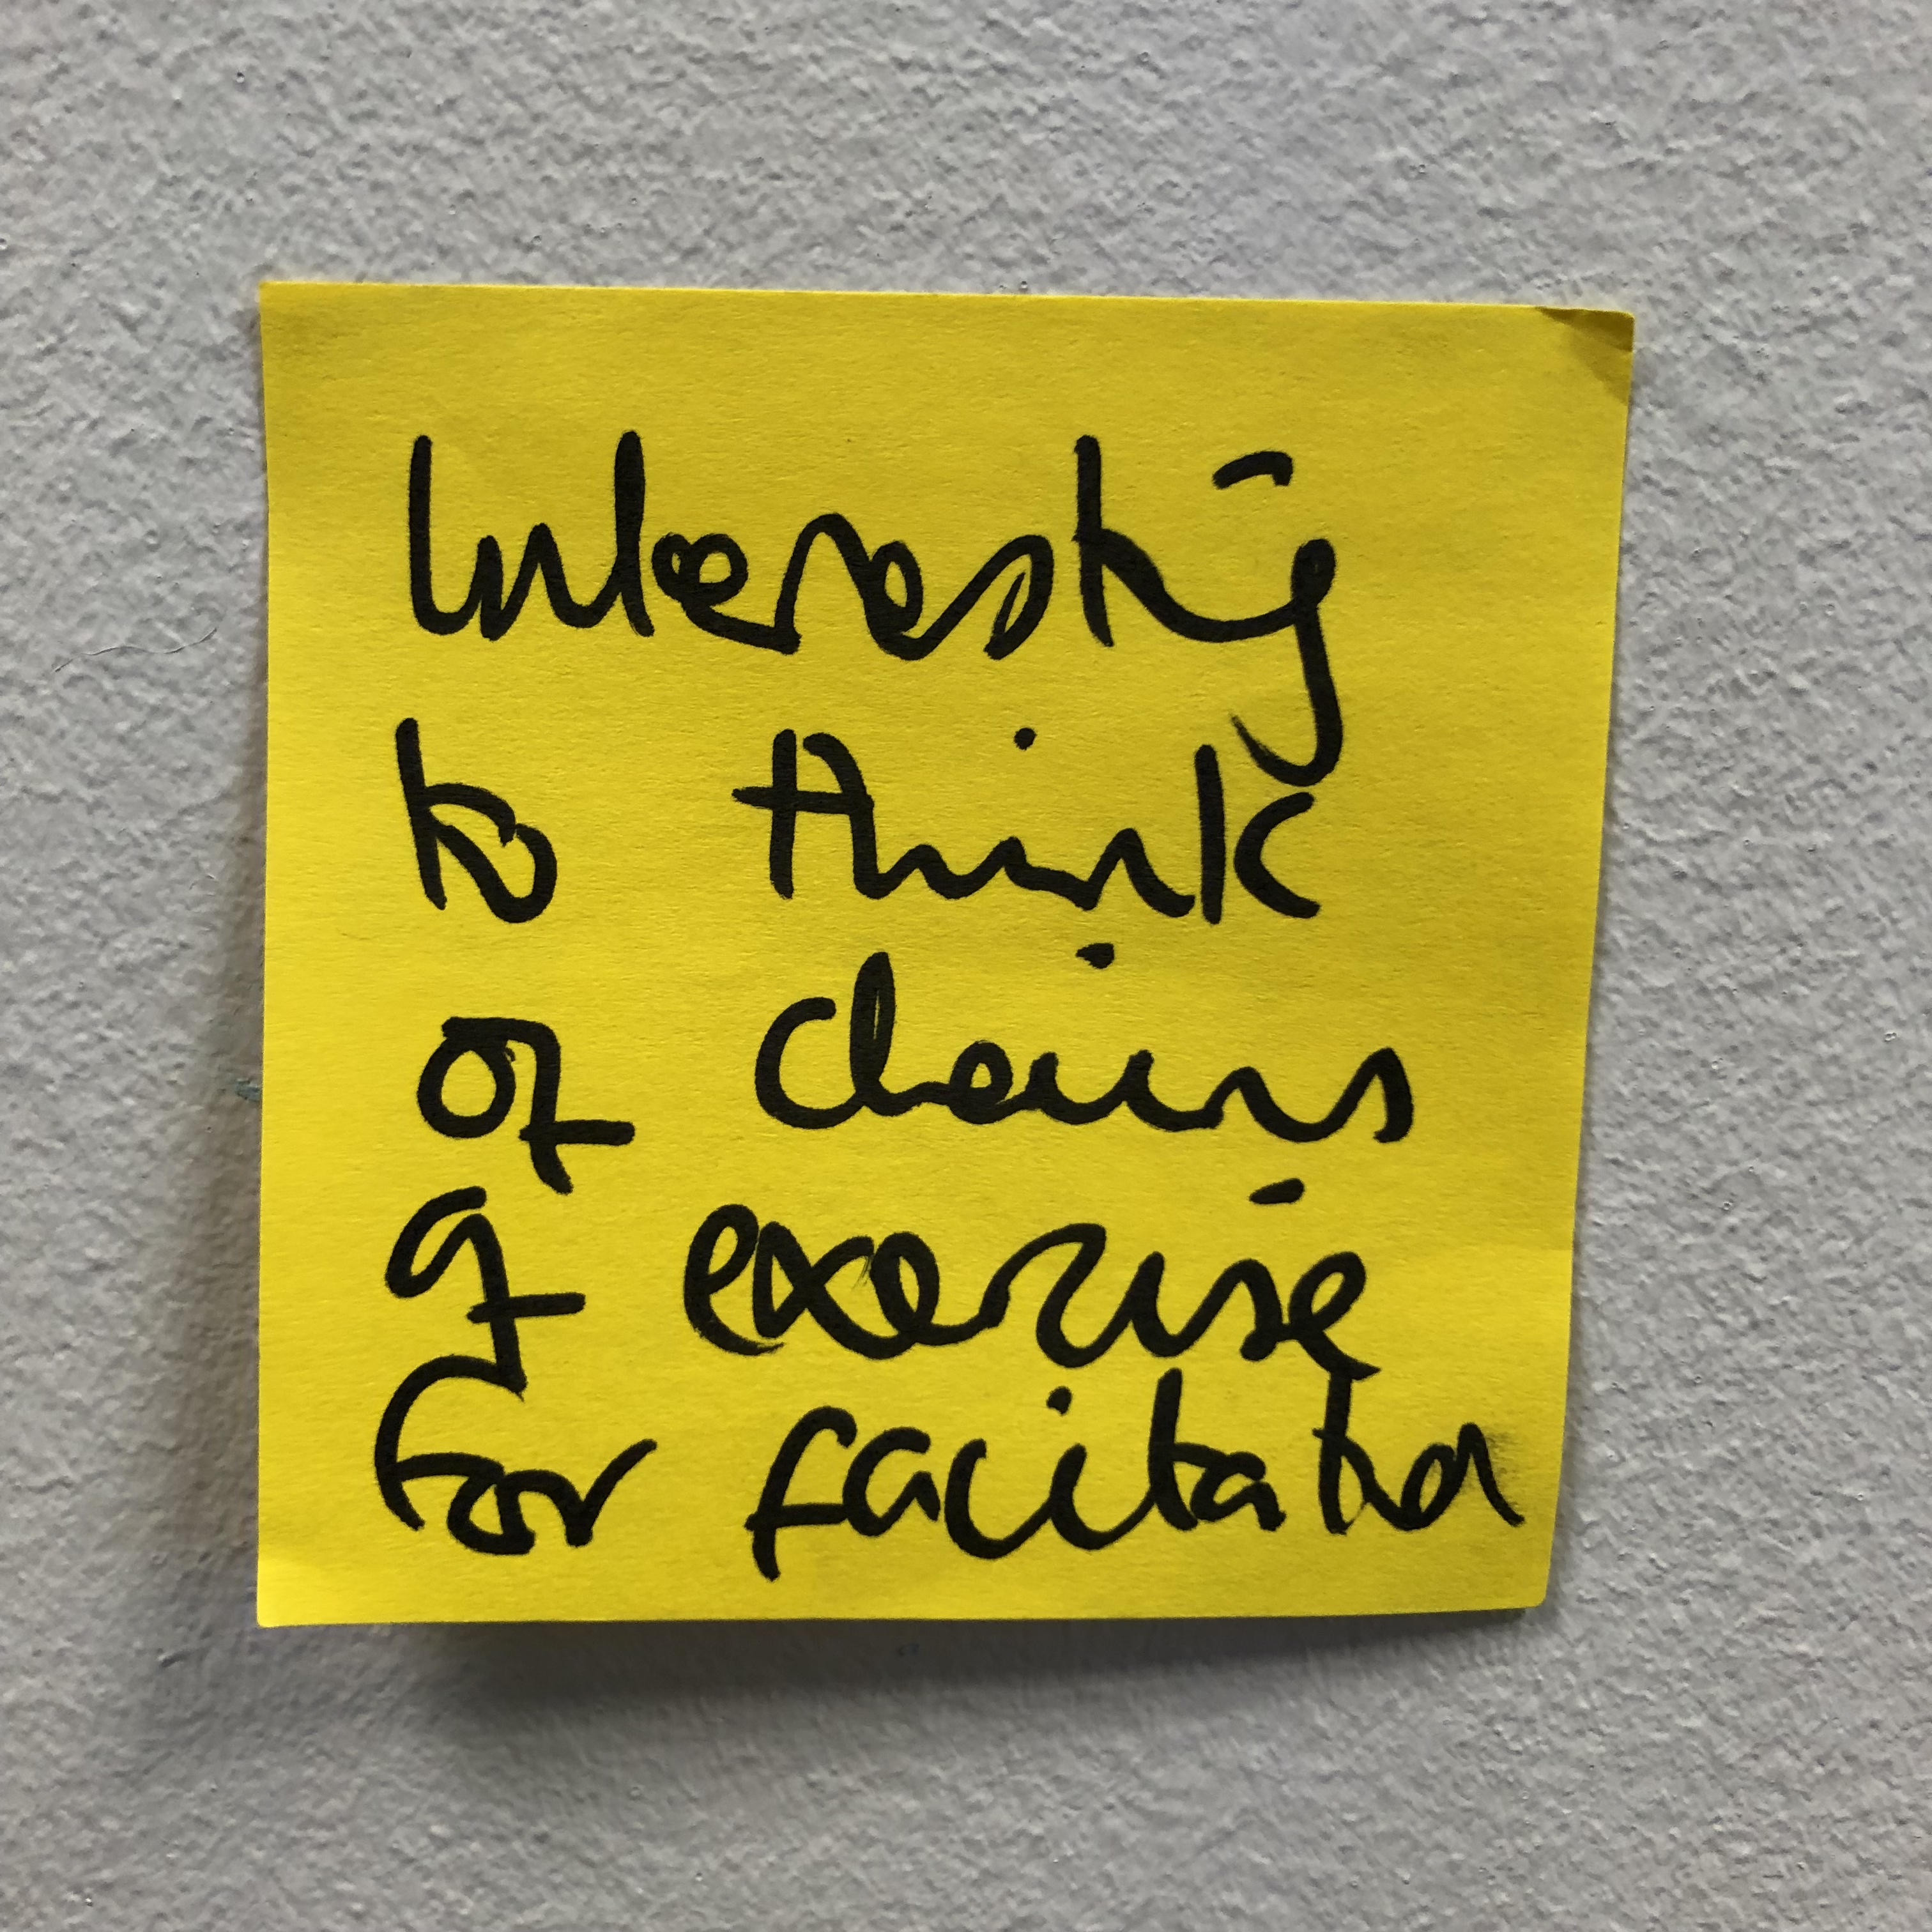 Interesting
to think
of chains
of exercise
for facilitator